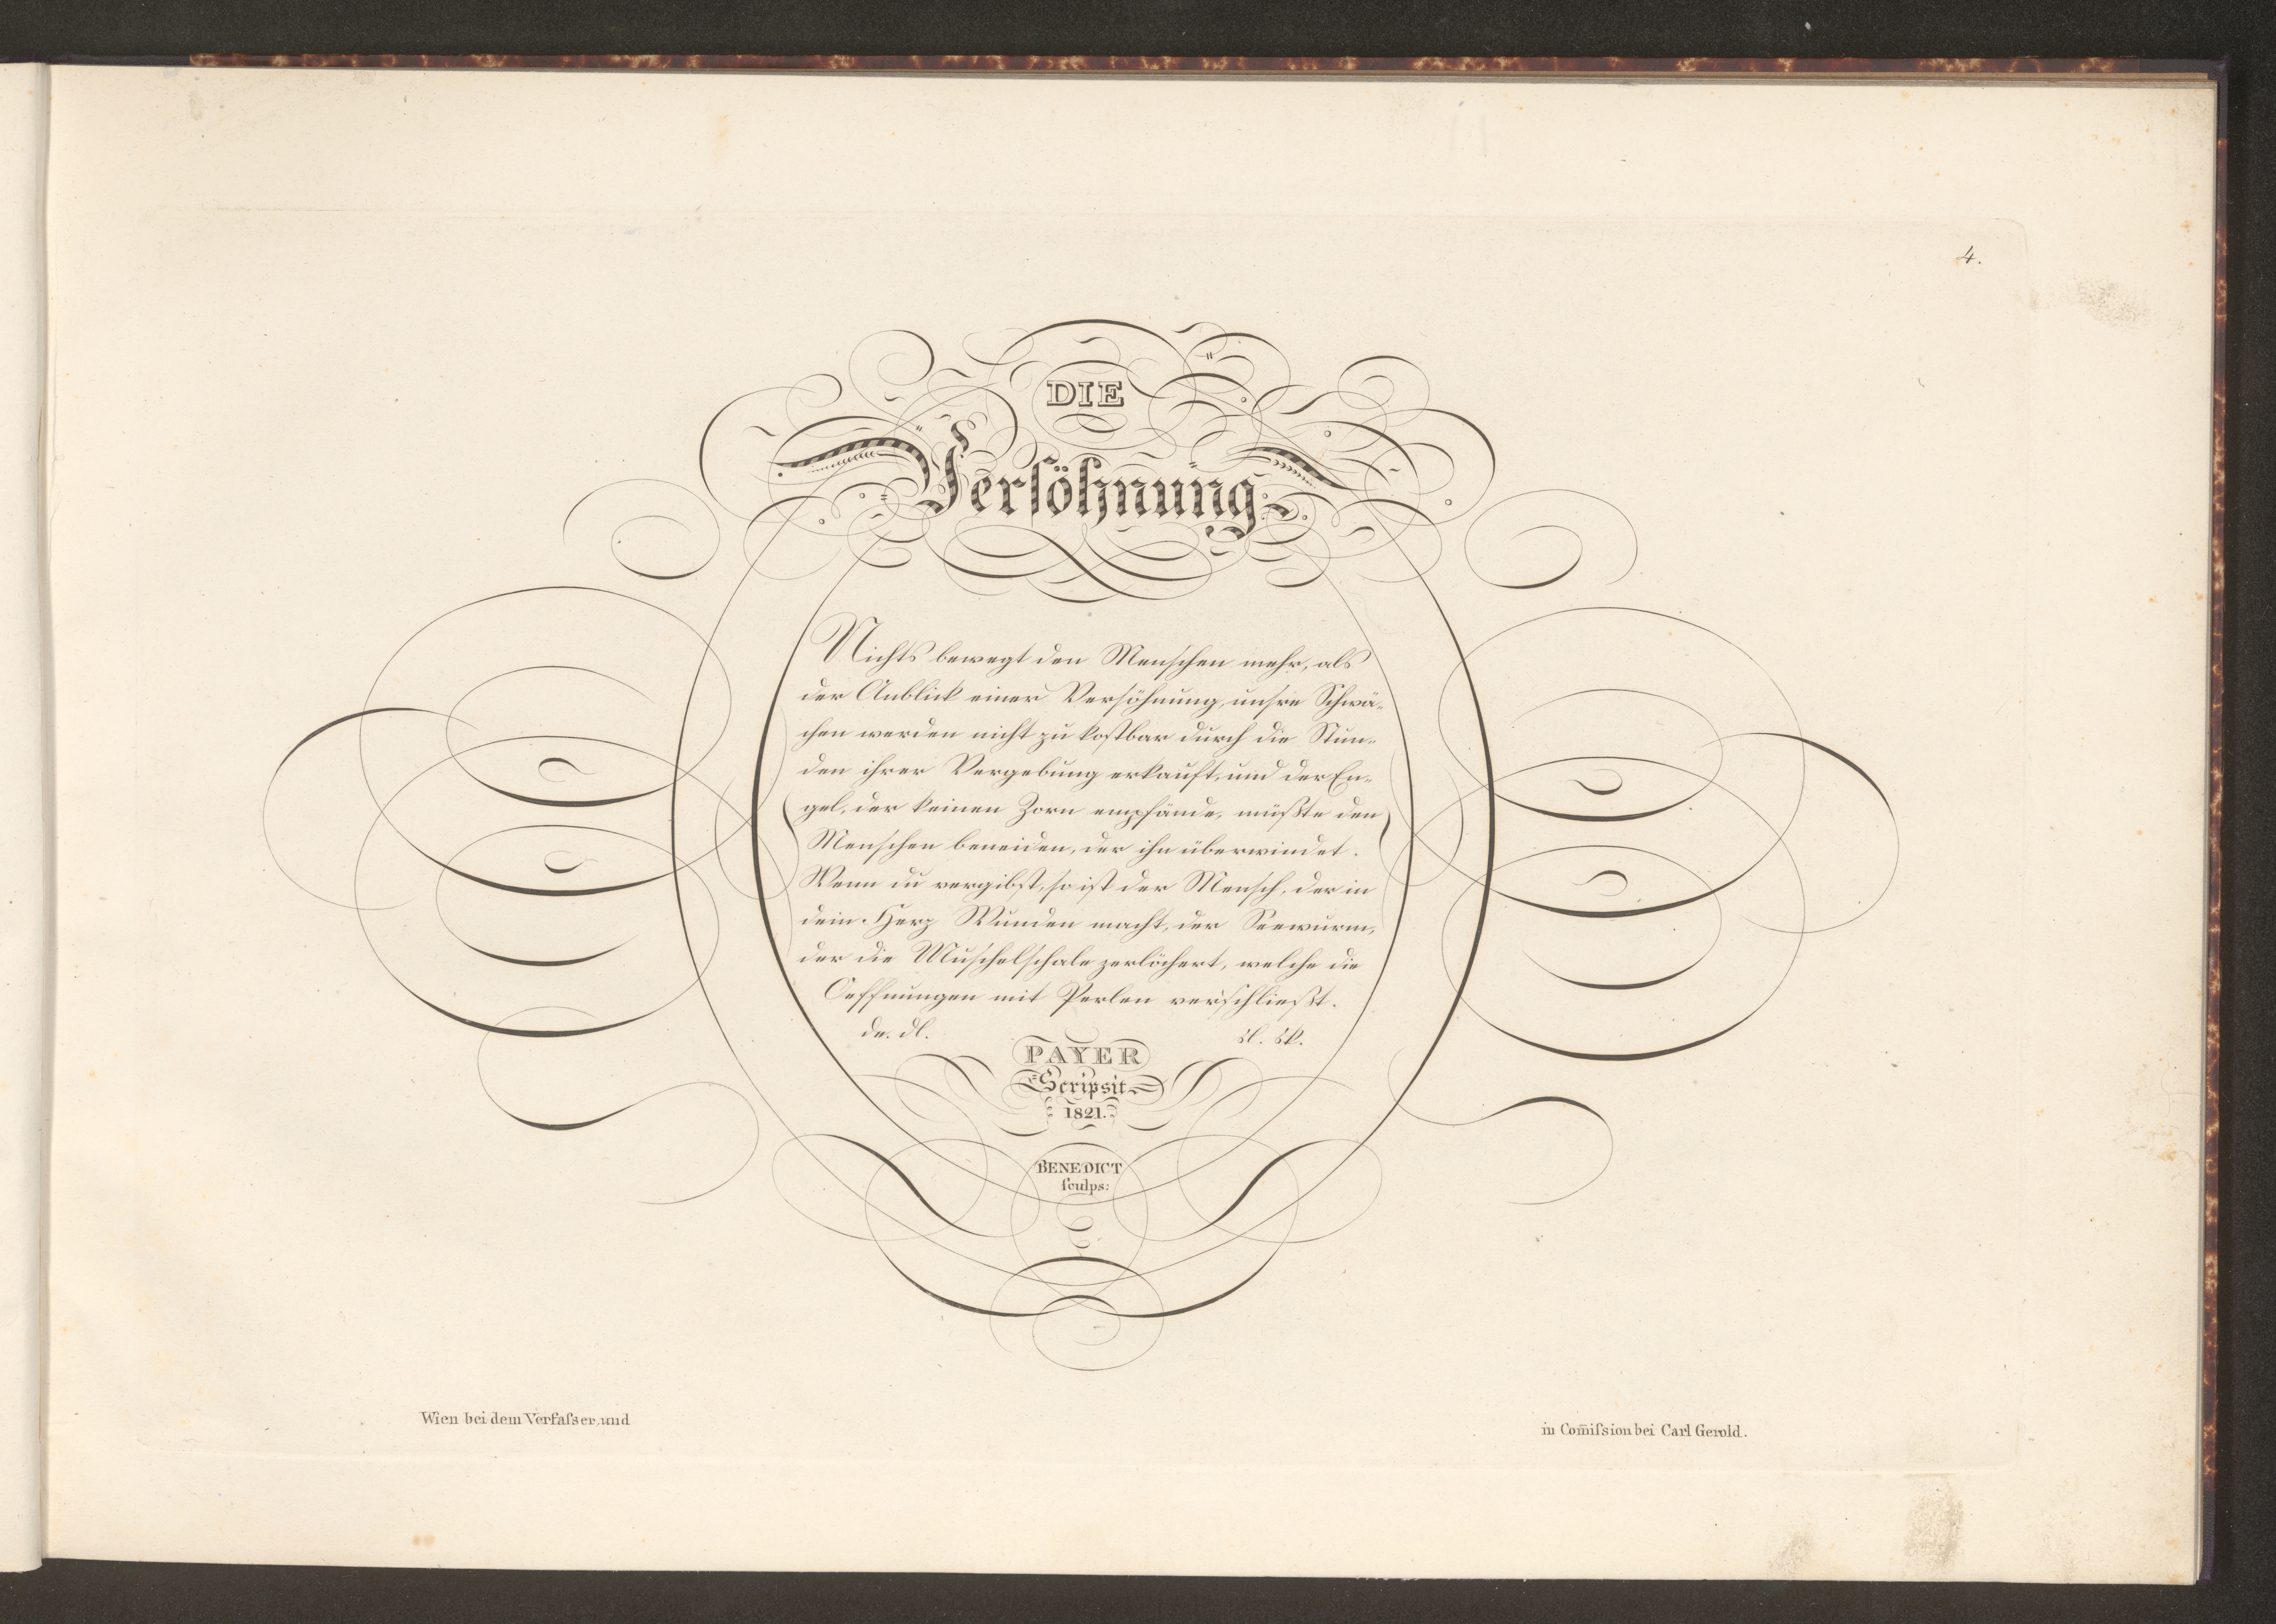 4.
DIE
Versöhnung.
Nichts bewegt den Menschen mehr, als
der Anblick einer Versöhnung, unsre Schwä-
chen werden nicht zu kostbar durch die Stun-
den ihrer Vergebung erkauft, und der En-
gel, der keinen Zorn empfände, müßte den
Menschen beneiden, der ihn überwindet.
Wenn du vergibst, so ist der Mensch, der in
dein Herz Wunden macht, der Seewurm,
der die Muschelschale zerlöchert, welche die
Oeffnungen mit Perlen verschließt.
PAYER
Scripsit
1821.
BENEDICT
sculps:
Wien bei dem Verfasser, und
in Com̄ission bei Carl Gerold.